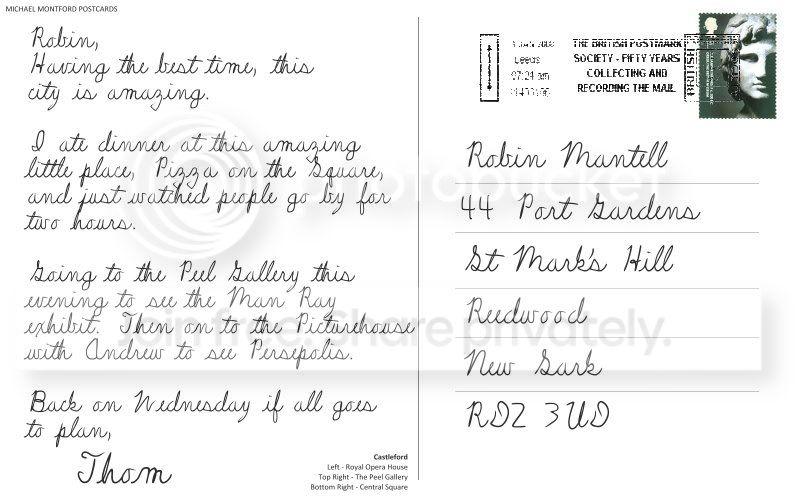 MICHAEL MONTFORD POSTCARDS
Robin,
Having the best time, this
city is amazing.
I ate dinner at this amazing
little place, Pizza on the Square,
and just watched people go by for
two hours.
Going to the Peel Gallery this
evening to see the Man Ray
exhibit. Then on to the Picturehouse
with Andrew to see Persepolis.
Back on Wednesday if all goes
to plan,
Thom
Castleford
Left - Royal Opera House
Top Right - The Peel Gallery
Bottom Right - Central Square
Leeds
07:21 am
THE BRITISH POSTMARK
SOCIETY - FIFTY YEARS
COLLECTING AND
RECORDING THE MAIL
BRITISH
Robin Mantell
44 Port Gardens
St Mark's Hill
Reedwood
New Sark
RD2 3UD
photobucket
Join free. Share privately.